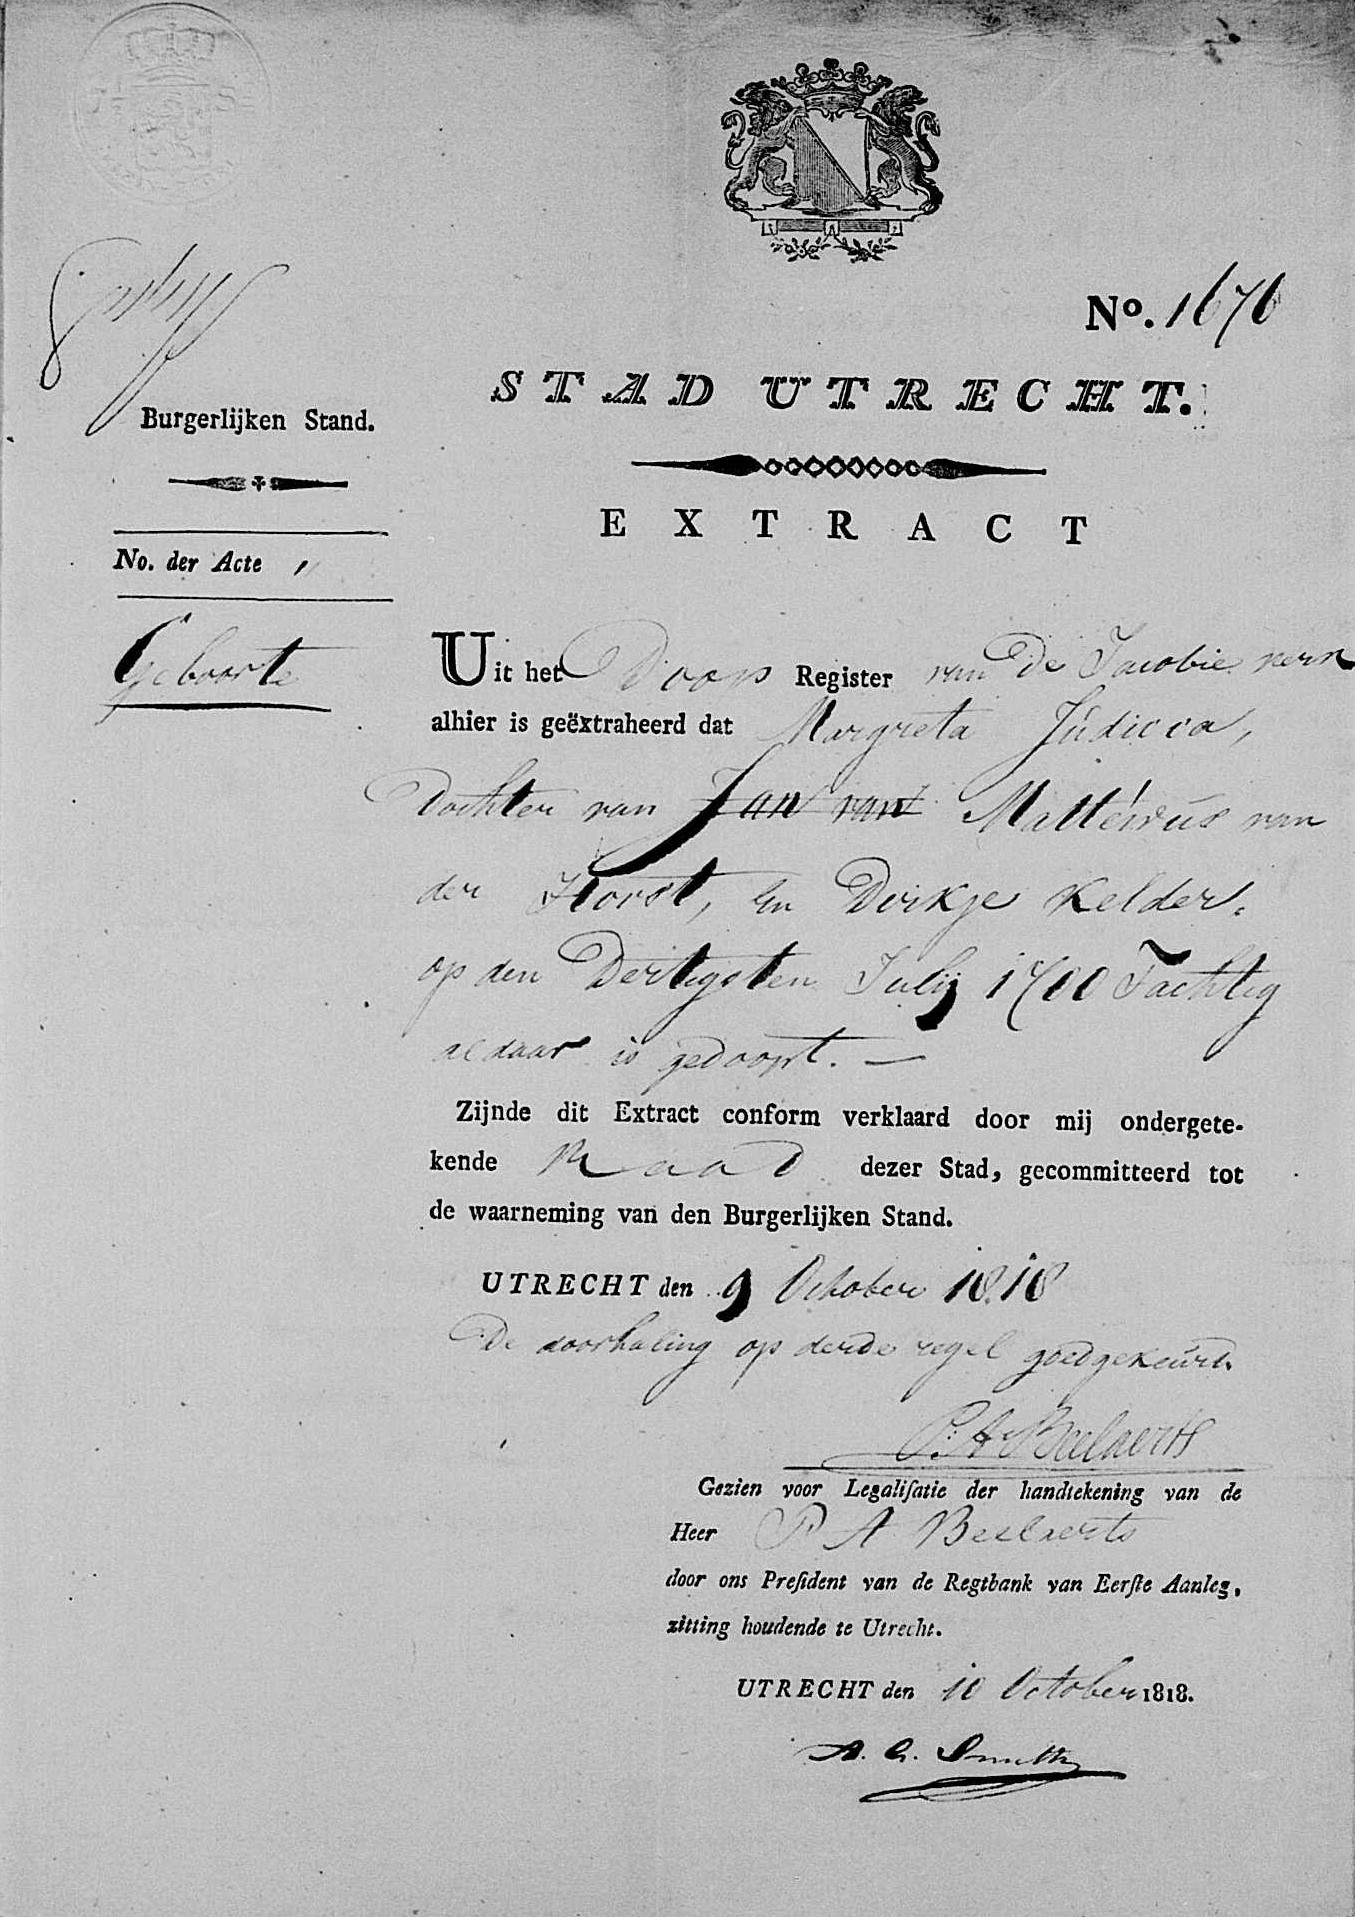 No. 1676
STAD UTRECHT.
Burgerlijken Stand.
EXTRACT
No. der Acte „
Geboorte
Uit het Doop Register van De Jacobie kerk
alhier is geëxtraheerd dat Margreta Judicca,
Dochter van Jan van Mattéwus van
der Horst, En Dirkje Kelder.
op den Dertigsten Julij 1700 Tachtig
aldaar is gedoopt. —
Zijnde dit Extract conform verklaard door mij ondergete-
kende Raad dezer Stad, gecommitteerd tot
de waarneming van den Burgerlijken Stand.
UTRECHT den 9 October 1818
De doorhaling op derde regel goedgekeurd.
P. A. Beelaerts
Gezien voor Legalisatie der handtekening van de
Heer P A Beelaerts
door ons President van de Regtbank van Eerste Aanleg,
zitting houdende te Utrecht.
UTRECHT den 10 October 1818.